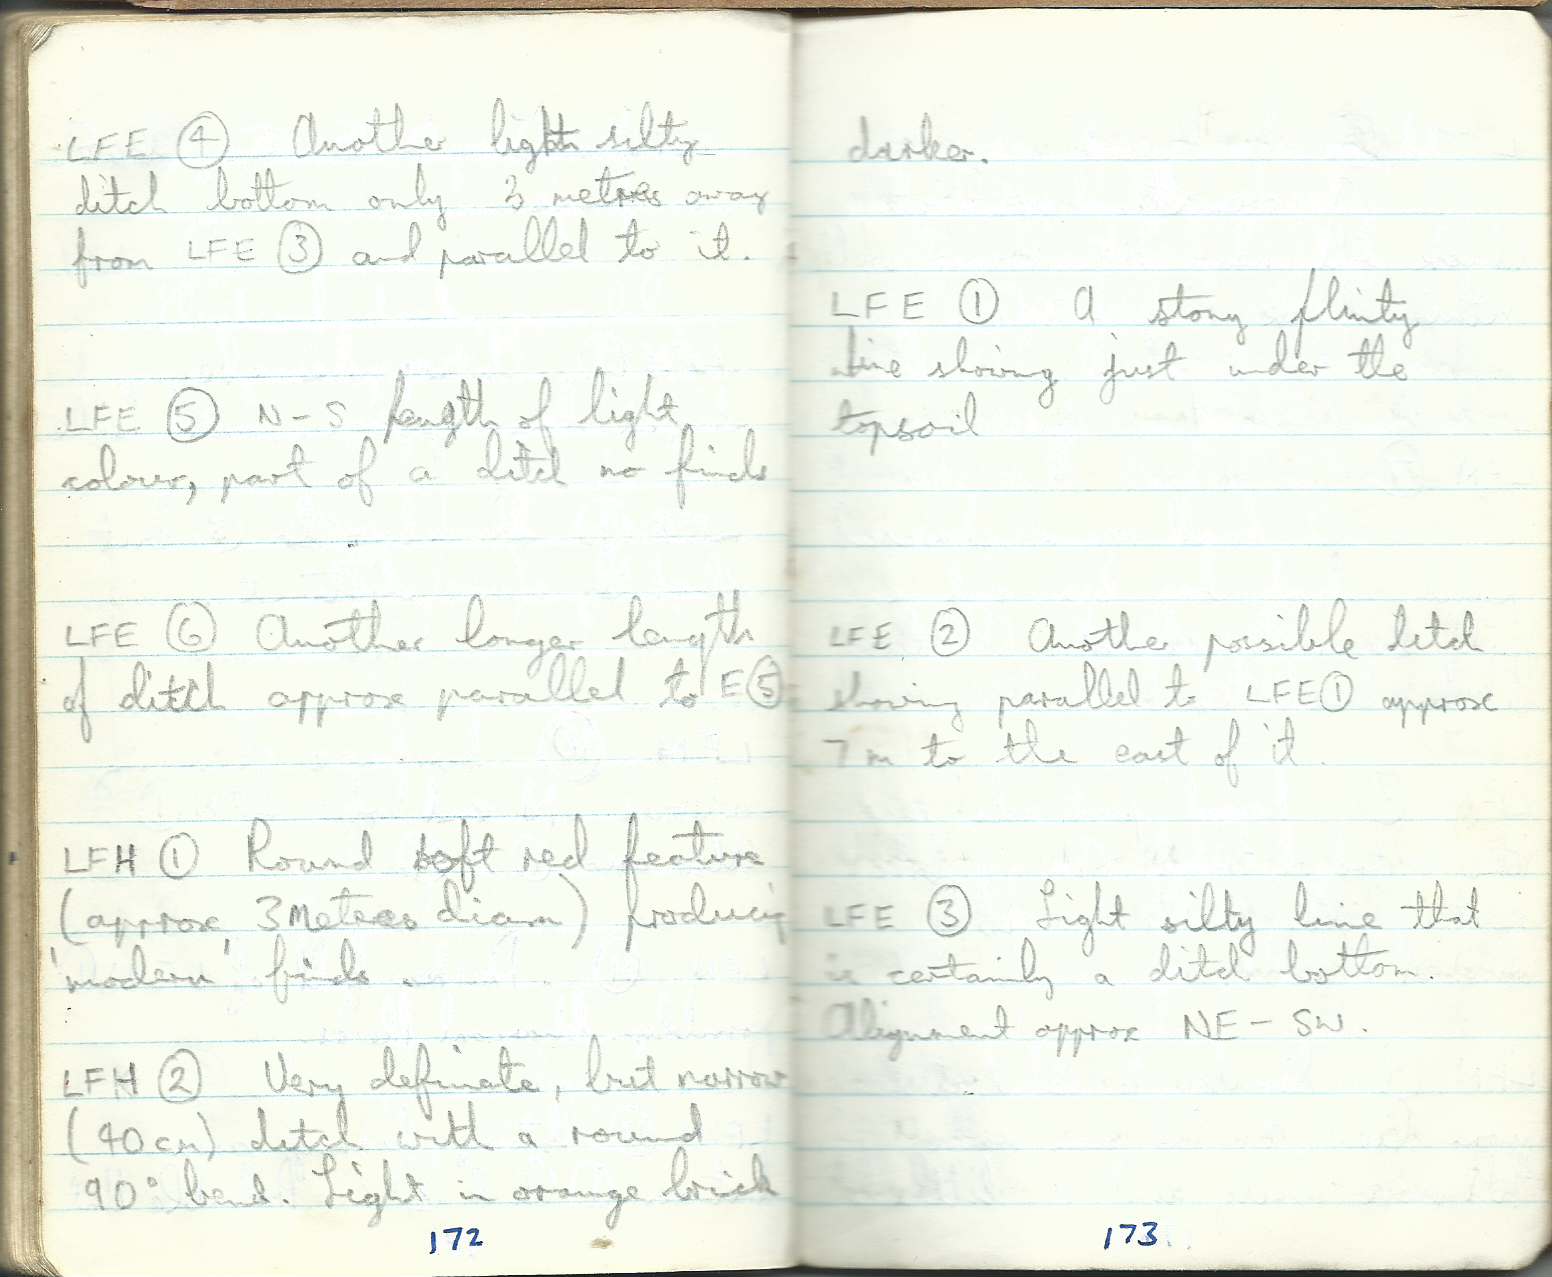 LFE ④ Another light silty
ditch bottom only 3 metres away
from LFE ③ and parallel to it.
LFE ⑤ N-S length of light
colour, part of a ditch no finds
LFE ⑥ Another longer length
of ditch approx parallel to E⑤
LFH ① Round soft red feature
(approx 3 Meteres diam) producing
'modern' finds.
LFH ② Very definate, but narrow
(40cm) ditch with a round
90° bend. Light in orange brick
172
darker.
LFE ① A stony flinty
line showing just under the
topsoil
LFE ② Another possible ditch
showing parallel to LFE① approx
7m to the east of it.
LFE ③ Light silty line that
is certainly a ditch bottom.
Alignment approx NE-SW.
173